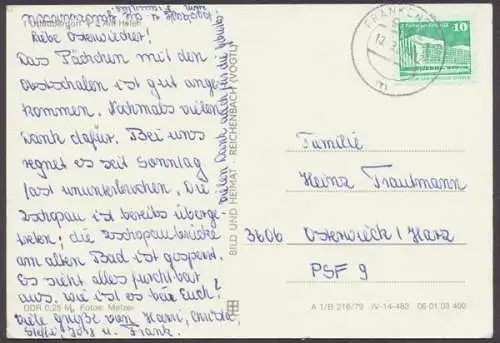 Liebe Osterwiecker!
Das Päckchen mit den
Obstschalen ist gut ange-
kommen. Nochmals vielen
Dank dafür. Bei uns
regnet es seit Sonntag
fast ununterbrochen. Die
Zschopau ist bereits überge-
treten; die Zschopaubrücke
am alten Bad ist gesperrt.
Es sieht alles furchtbar
aus. Wie ist es bei Euch?
Viele Grüße von Hanni,
u. Frank.
vielen Dank auch für die
BILD UND HEIMAT · REICHENBACH (VOGTL)
DDR 0,25 M Fotos: Melzer
FRANKEN
10
Familie
Heinz Trautmann
3606 Osterwieck / Harz
PSF 9
A 1/B 216/79 IV-14-483 06 01 03 400